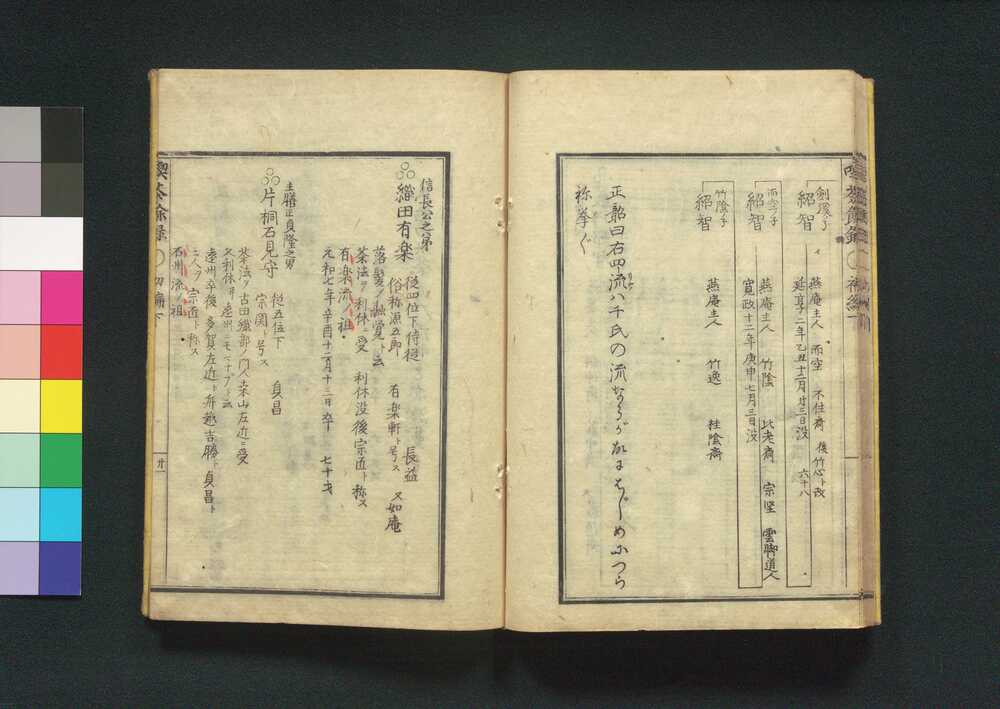 剣環子
紹智
燕庵主人 而空 不住斎 後竹心ト改
延享二年乙丑十二月廿三日没 六十八
而空子
紹智
燕庵主人 竹陰 比老斎 宗堅 雲脚道人
寛政十二年庚申七月三日没
竹陰子
紹智
燕庵主人 竹逸 桂陰斎
正韶曰右四流ハ千氏の流
祢挙ぐ
信長公之弟
織田有楽
従四位下侍従 長益
俗称源五郎 有楽軒ト号ス 又如庵
落髪シ融覚ト云
茶法ヲ利休ニ受 利休没後宗匠ト称ス
有楽流ノ祖
元和七年辛酉十二月十三日卒 七十才
主膳正貞隆之男
片桐石見守
従五位下 貞昌
宗関ト号ス
茶法ヲ古田織部ノ門人桑山左近ニ受
又利休ヨリ遠州ニモマナブト云
遠州卒後 多賀左近ト舟越吉勝ト貞昌ト
三人ヲ宗匠ト称ス
石州流ノ祖
喫茶余録 初編下
廿一